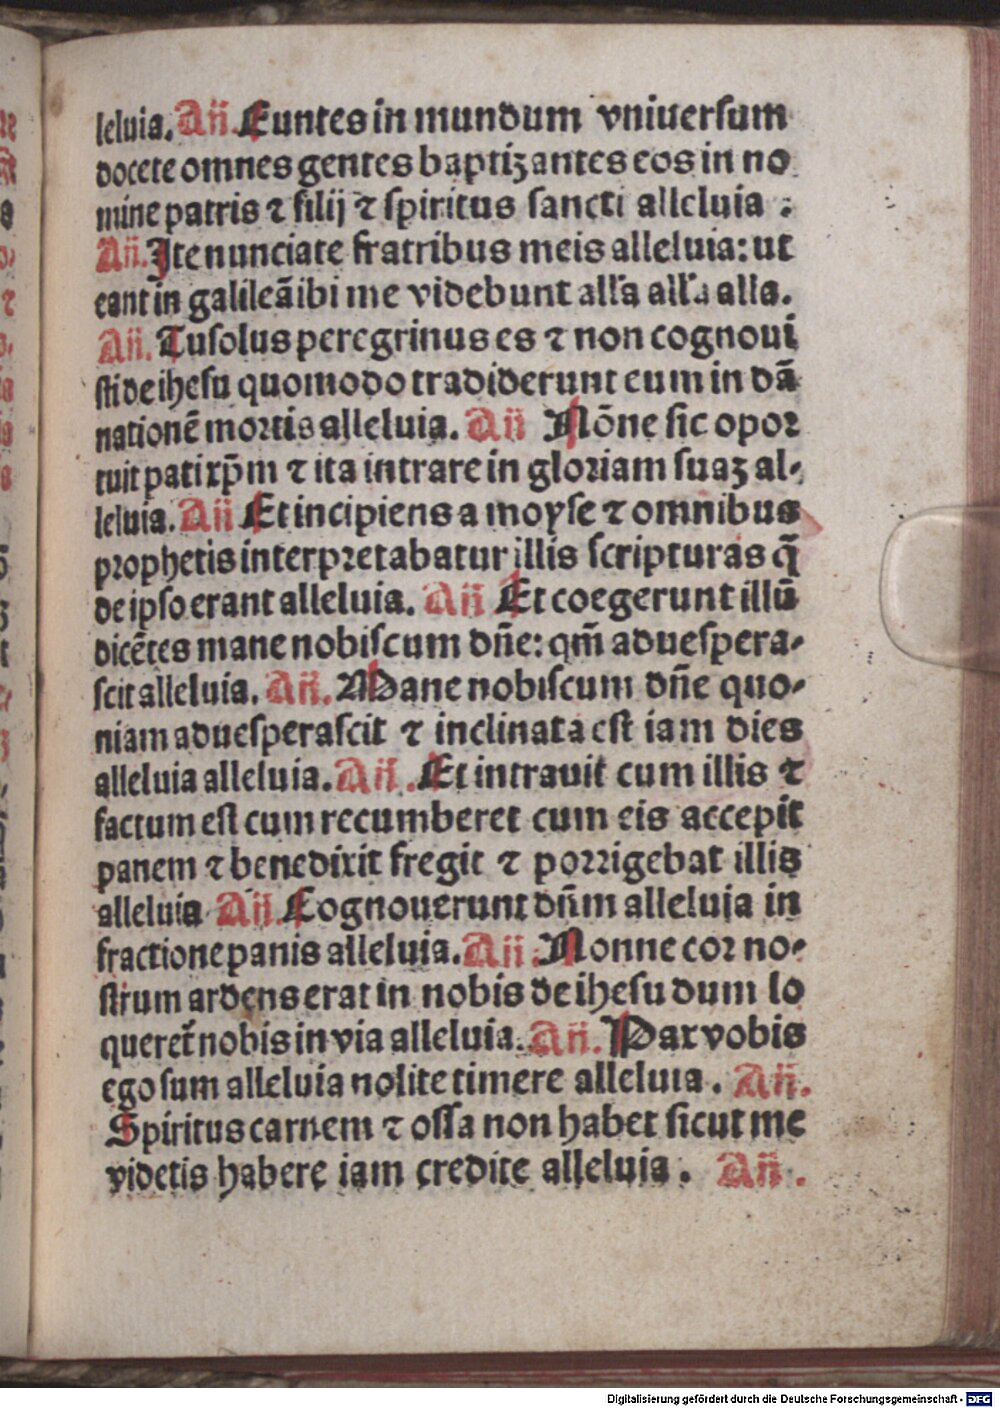 leluia. Añ. Euntes in mundum vniuersum
docete omnes gentes baptizantes eos in no
mine patris ⁊ filij ⁊ spiritus sancti alleluia :
Añ. Ite nunciate fratribus meis alleluia: ut
eant in galileā ibi me videbunt alľa alľa alla.
Añ. Tu solus peregrinus es ⁊ non cognoui
sti de ihesu quomodo tradiderunt eum in dā
nationē mortis alleluia. Añ Nōne sic opor
tuit pati xp̄m ⁊ ita intrare in gloriam suaꝫ al-
leluia. Añ Et incipiens a moyse ⁊ omnibus
prophetis interpretabatur illis scripturas q̄
de ipso erant alleluia. Añ Et coegerunt illū
dicētes mane nobiscum dñe: qm̄ aduespera-
scit alleluia. Añ. Mane nobiscum dñe quo-
niam aduesperascit ⁊ inclinata est iam dies
alleluia alleluia. Añ. Et intrauit cum illis ⁊
factum est cum recumberet cum eis accepit
panem ⁊ benedixit fregit ⁊ porrigebat illis
alleluia Añ. Cognouerunt dñm alleluia in
fractione panis alleluia. Añ. Nonne cor no-
strum ardens erat in nobis de ihesu dum lo
queret̄ nobis in via alleluia. Añ. Pax vobis
ego sum alleluia nolite timere alleluia. Añ.
Spiritus carnem ⁊ ossa non habet sicut me
videtis habere iam credite alleluia. Añ.
Digitalisierung gefördert durch die Deutsche Forschungsgemeinschaft - DFG